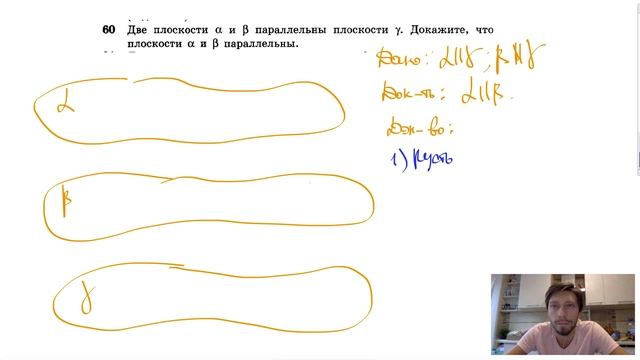 60 Две плоскости α и β параллельны плоскости γ. Докажите, что
плоскости α и β параллельны.
Дано: α||γ; β||γ
Док-ть: α||β.
Док-во:
1) Пусть
α
β
γ